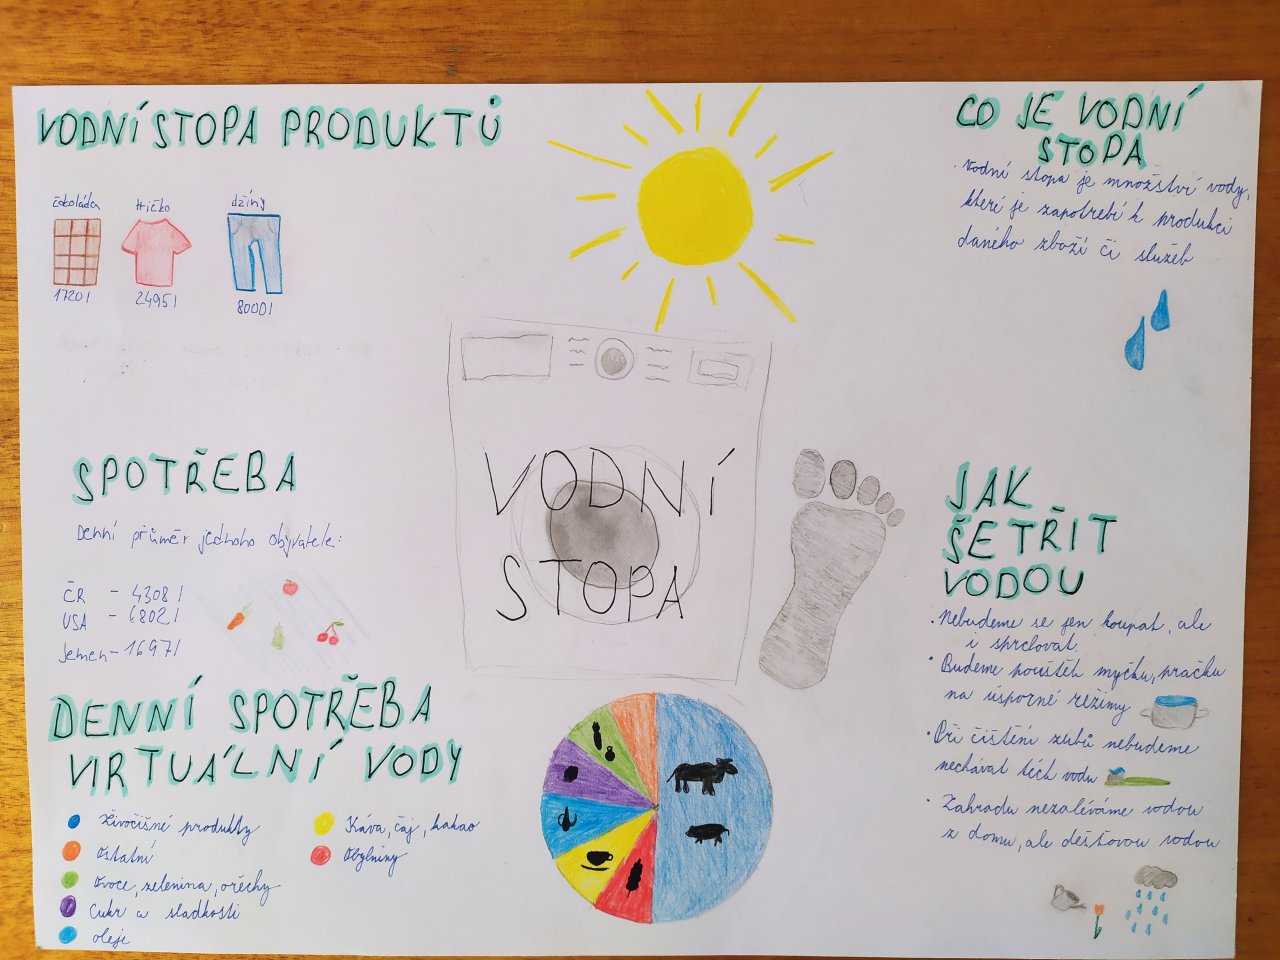 VODNÍ STOPA PRODUKTŮ
čokoláda
tričko
džíny
1720 l
2495 l
8000 l
SPOTŘEBA
Denní průměr jednoho obyvatele:
ČR - 4308 l
USA - 6802 l
Jemen - 1697 l
DENNÍ SPOTŘEBA
VIRTUÁLNÍ VODY
Živočišné produkty
Ostatní
Ovoce, zelenina, ořechy
Cukr a sladkosti
oleje
Káva, čaj, kakao
Obylniny
VODNÍ
STOPA
CO JE VODNÍ
STOPA
· Vodní stopa je množství vody,
které je zapotřebí k produkci
daného zboží či služeb
JAK
ŠETŘIT
VODOU
· Nebudeme se jen koupat, ale
i sprchovat
· Budeme pouštět myčku, pračku
na úsporné režimy
· Při čištění zubů nebudeme
nechávat téct vodu
· Zahradu nezaléváme vodou
z domu, ale dešťovou vodou